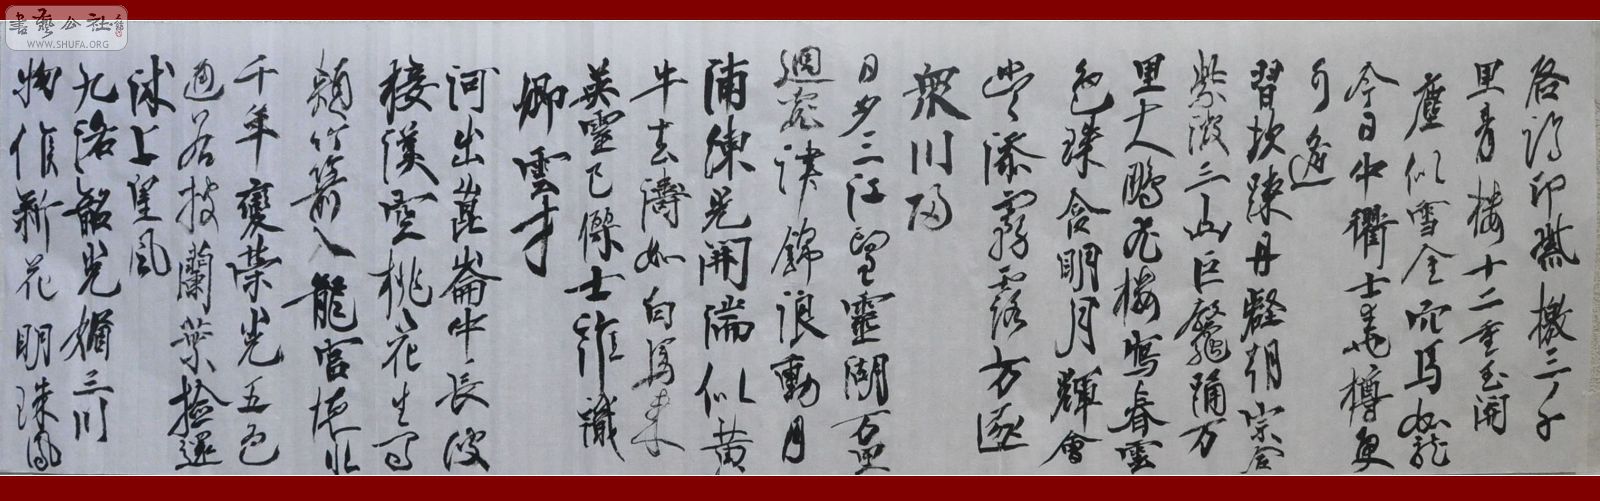 徼三千
里青樓十二重玉關
塵似雪金穴馬如龍
今日中衢士堯樽更
可逢
習坎疎丹壑朝宗合
紫微三山巨鼇踊万
里大鵬飛樓寫春雲
色珠含明月輝會
添霧露方逐
衆川歸
日夕三江望靈湖万里
迴霞津錦浪動月
浦練花開湍似黄
牛去濤如白馬来
英靈已傑士誰識
卿雲才
河出崑崙中長波
接漢空桃花生馬
頰竹箭入龍宫德水
千年變榮光五色
通若披蘭葉檢還
沐上皇風
九洛韶光媚三川
物候新花明珠鳳
書藝公社
WWW.SHUFA.ORG